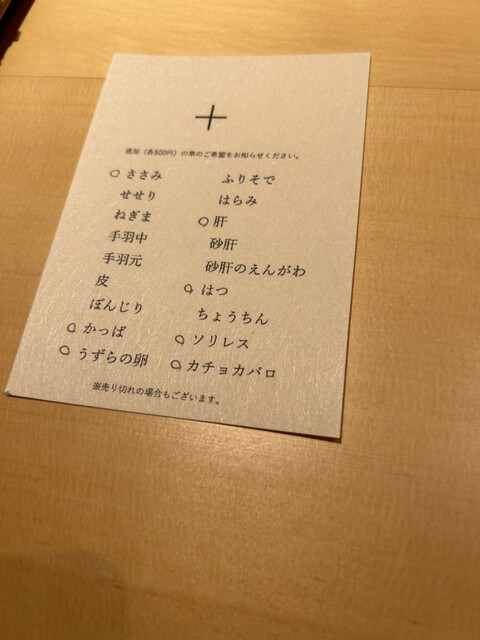 ＋
追加（各500円）の串のご希望をお知らせください。
○ささみ
せせり
ねぎま
手羽中
手羽元
皮
ぼんじり
○かっぱ
○うずらの卵
ふりそで
はらみ
○肝
砂肝
砂肝のえんがわ
○はつ
ちょうちん
○ソリレス
○カチョカバロ
※売り切れの場合もございます。